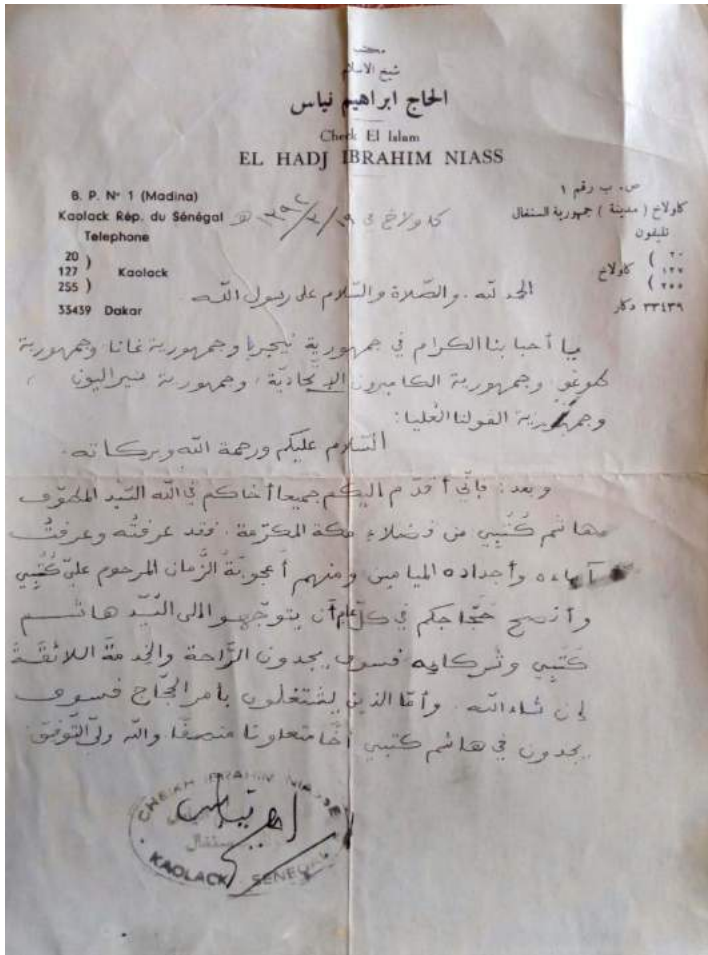 مكتب
شيخ الاسلام
الحاج ابراهيم نياس
Cheek El Islam
EL HADJ IBRAHIM NIASS
B. P. Nº 1 (Madina)
Kaolack Rép. du Sénégal
Telephone
20 )
127 ) Kaolack
255 )
33439 Dakar
ص. ب رقم ١
كاولاخ ( مدينة ) جمهورية السنغال
تليفون
٢٠ )
١٢٧ ( كاولاخ
٢٥٥ )
٣٣٤٣٩ دكار
كاولاخ في ١٩/٣/١٣٩٢ هـ
الحمد لله. والصّلاة والسّلام على رسول الله
يا أحبابنا الكرام في جمهورية نيجريا وجمهورية غانا وجمهورية
وجمهورية الكاميرون الإتحاديّة، وجمهورية سيراليون
وجمهورية الفولتا العُليا:
السّلام عليكم ورحمة الله وبركاته.
وبعد: فإنّي أقدّم إليكم جميعا أخاكم في الله السّيد المطوّف
هاشم كُتُبِي من فضلاءِ مكة المكرّمة. فقد عرفتُه وعرفتُ
آباءه وأجداده الميامين ومنهم أعجوبَةُ الزّمان المرحوم عليّ كُتُبِي
وأنصح حجّاجكم في كلّ عام أن يتوجّهوا إلى السّيّد هاشم
كُتُبِي وشركايه فسوف يجدون الرّاحة والخدمةَ اللائقَةَ
إن شاء الله. وأمّا الذين يشتغلون بأمر الحجّاج فسوف
يجدون في هاشم كتبي أخًا متعاونا منصفًا. والله وليّ التّوفيق
CHEIKH IBRAHIM NIASSE
KAOLACK SENEGAL